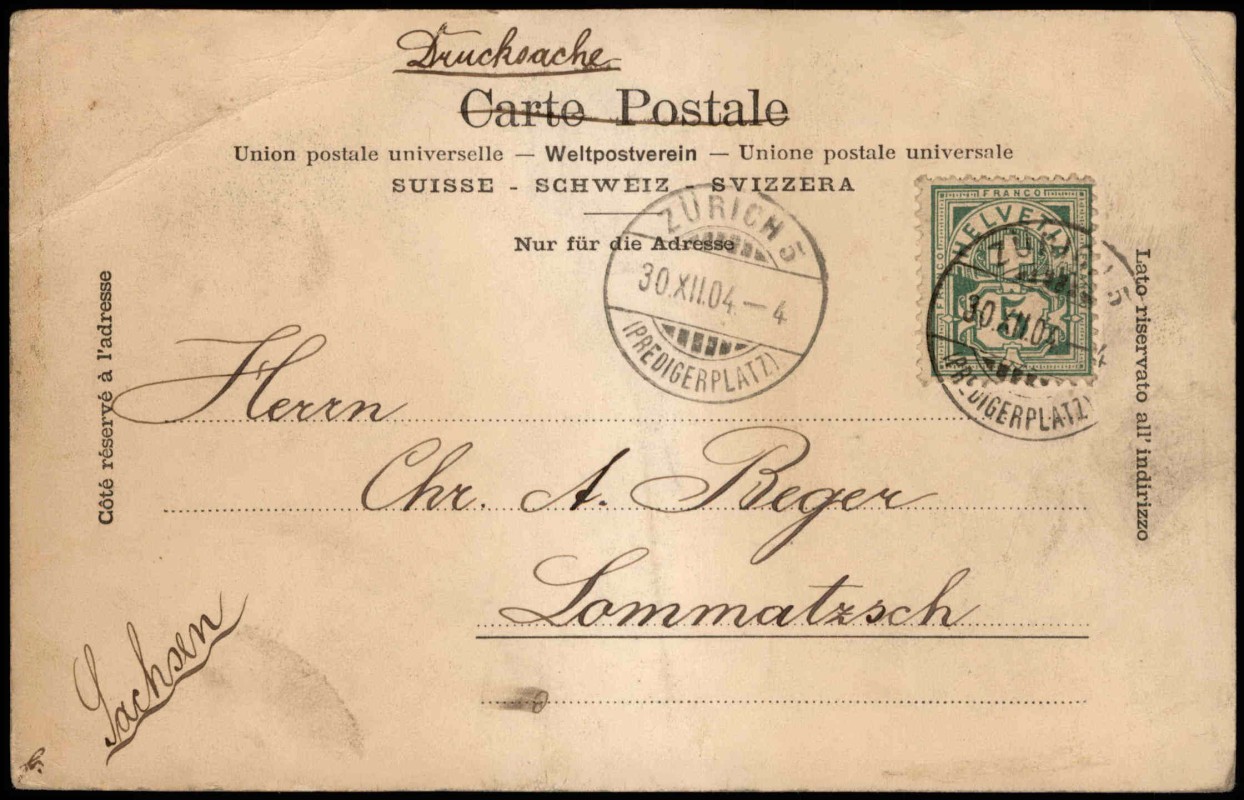 Drucksache
Carte Postale
Union postale universelle — Weltpostverein — Unione postale universale
SUISSE - SCHWEIZ - SVIZZERA
Nur für die Adresse
ZÜRICH 5
30.XII.04 – 4
(PREDIGERPLATZ)
FRANCO
HELVETIA
FRANCO
5
ZÜRICH 5
30.XII.04 – 4
(PREDIGERPLATZ)
Côté réservé à l'adresse
Lato riservato all' indirizzo
Herrn
Chr. A. Beger
Lommatzsch
Sachsen